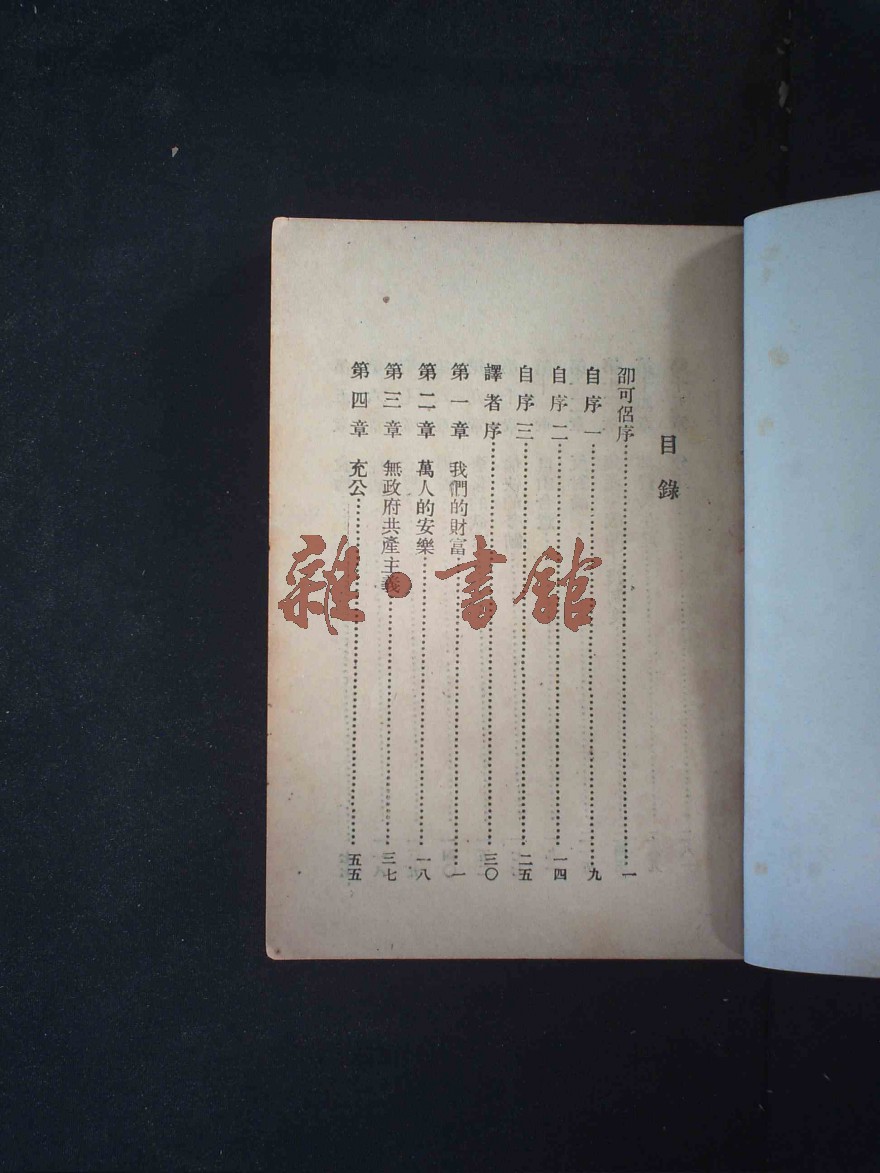 目錄
卲可侶序……一
自序一……九
自序二……一四
自序三……二五
譯者序……三〇
第一章 我們的財富……一
第二章 萬人的安樂……一八
第三章 無政府共產主義……三七
第四章 充公……五五
雜·書館